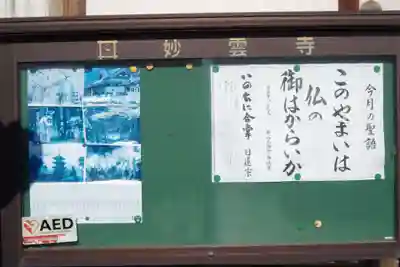 妙雲寺
今月の聖語
このやまいは
仏の
御はからいか
いのちに合掌 日蓮宗
AED